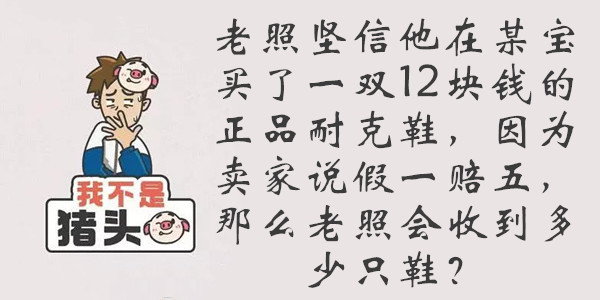 老照坚信他在某宝
买了一双12块钱的
正品耐克鞋，因为
卖家说假一赔五，
那么老照会收到多
少只鞋？
我不是
猪头